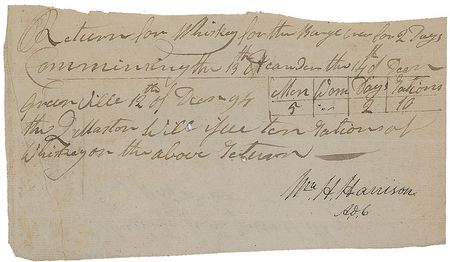 Return for Whiskey for the Barge Crew for 2 Days
Comminsing the 13th & enden the 14th of Decm
Green Ville 12th of Decm 94
Men Wom Days Rations
5 " 2 10
the Q Master Will isue ten rations of
Whiskey on the above return
Wm H. Harrison
A.d.C